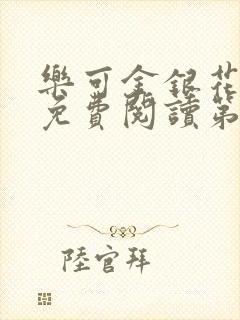 樂可金銀花
免費閱讀第
陸官拜